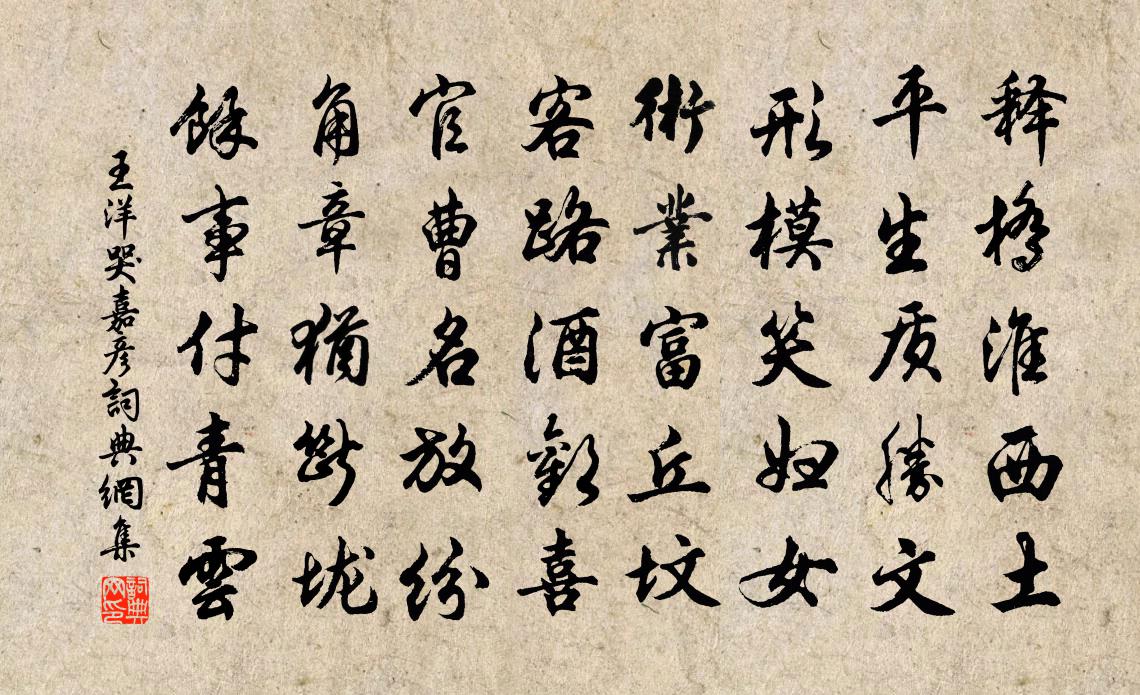 释橋淮西土
平生质勝文
形模笑妇女
術業富丘坟
客路酒歡喜
官曹名放紛
角章猶斷垅
餘事付青雲
王洋哭嘉彦詞典網集
詞典网印